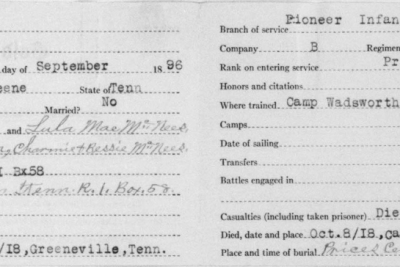 day of September 1896
eene State of Tenn
Married? No
and Lula Mae McNees
Charmie + Bessie McNees
Bx58
Tenn. R. 1. Box 58
/18, Greeneville, Tenn.
Branch of service Pioneer Infan
Company B Regimen
Rank on entering service Pr
Honors and citations
Where trained Camp Wadsworth
Camps
Date of sailing
Transfers
Battles engaged in
Casualties (including taken prisoner) Die
Died, date and place Oct.8/18, Ca
Place and time of burial Prices Ce